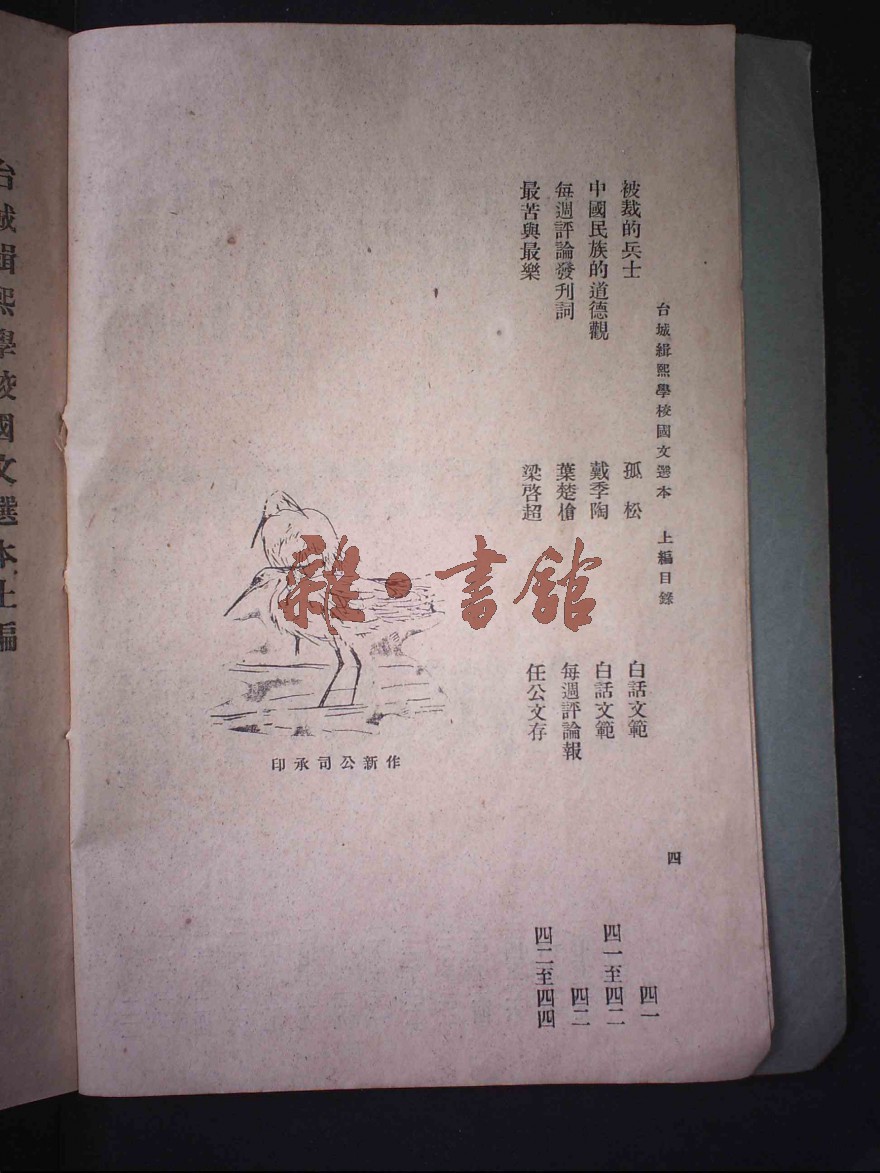 台城緝熙學校國文選本 上編目錄 四
被裁的兵士 孤松 白話文範 四一
中國民族的道德觀 戴季陶 白話文範 四一至四二
每週評論發刊詞 葉楚槍 每週評論報 四二
最苦與最樂 梁啓超 任公文存 四二至四四
作新公司承印
雜·書館
台城緝熙學校國文選本上編